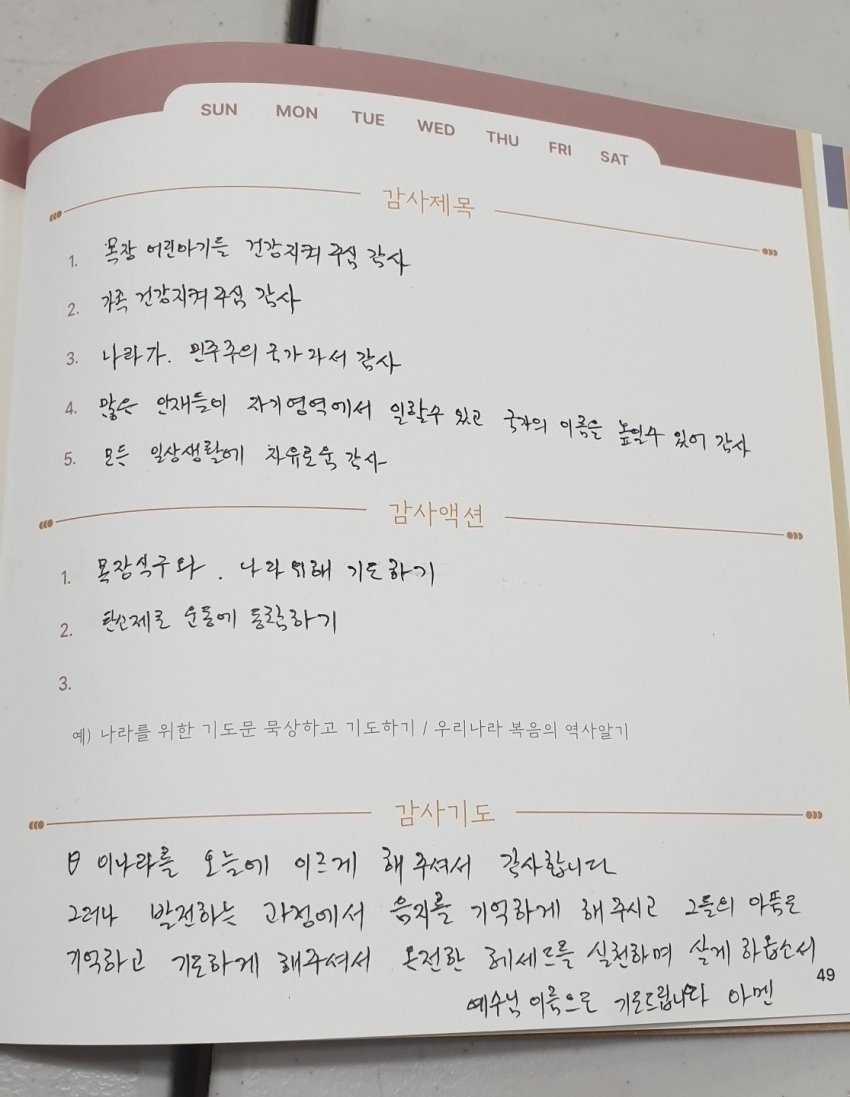 SUN MON TUE WED THU FRI SAT
감사제목
1. 목장 어린아기들 건강지켜 주심 감사
2. 가족 건강지켜 주심 감사
3. 나라가. 민주주의 국가 감사
4. 많은 인재들이 자기영역에서 일할수 있고 국가의 이름을 높일수 있어 감사
5. 모든 일상생활에 자유로움 감사
감사액션
1. 목장식구와. 나라위해 기도하기
2. 탄소제로 운동에 동참하기
3.
예) 나라를 위한 기도문 묵상하고 기도하기 / 우리나라 복음의 역사알기
감사기도
이나라를 오늘에 이르게 해 주셔서 감사합니다
그러나 발전하는 과정에서 음지를 기억하게 해 주시고 그들의 아픔을
기억하고 기도하게 해주셔서 온전한 헤세드를 실천하며 살게 하옵소서
예수님 이름으로 기도드립니다 아멘
49